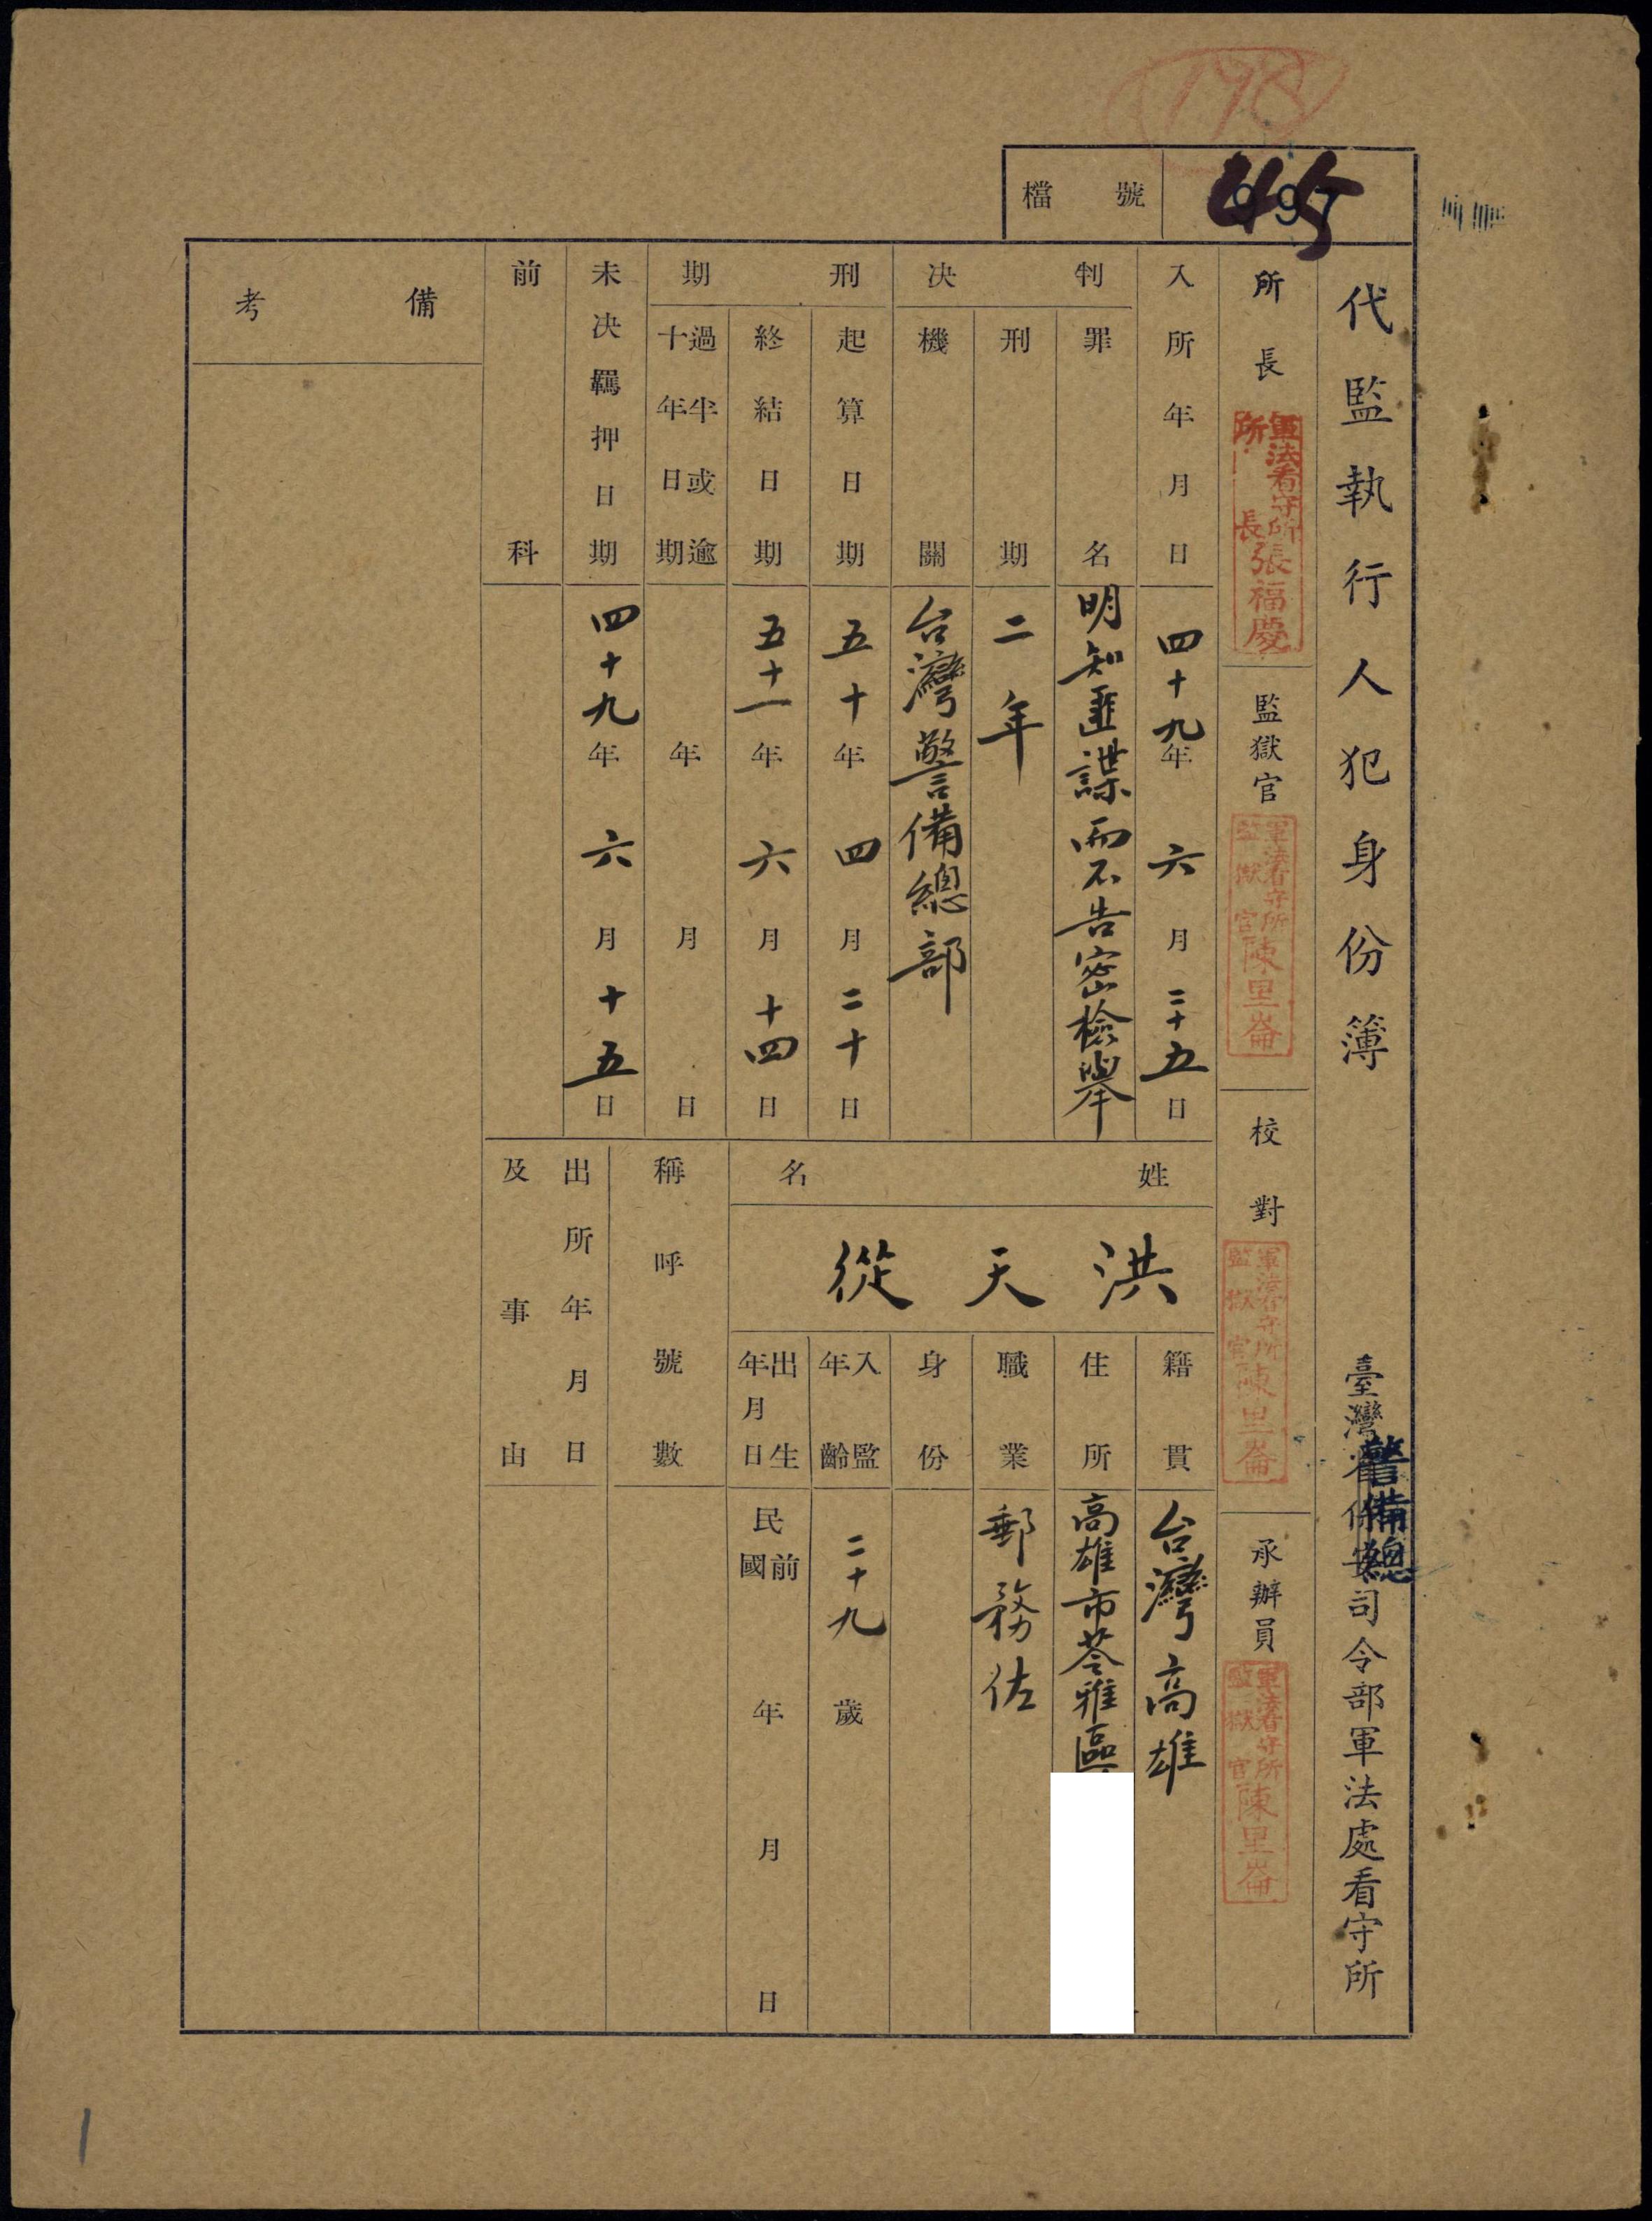 198
檔號
997
45
代監執行人犯身份簿
臺灣司令部軍法處看守所
警備總
所長
軍法看守所所長張福慶
監獄官
軍法看守所監獄官陳里崙
校對
軍法看守所監獄官陳里崙
承辦員
軍法看守所監獄官陳里崙
入所年月日
四十九年六月二十五日
判決
罪名
明知匪諜而不告密檢舉
刑期
二年
機關
台灣警備總部
刑期
起算日期
五十年四月二十日
終結日期
五十一年六月十四日
過半或逾十年日期
年月日
未决羈押日期
四十九年六月十五日
前科
備考
姓名
洪天從
籍貫
台灣高雄
住所
高雄市苓雅區
職業
郵務佐
身份
入監年齡
二十九歲
出生年月日
民國前年月日
稱呼號數
出所年月日
及事由
1